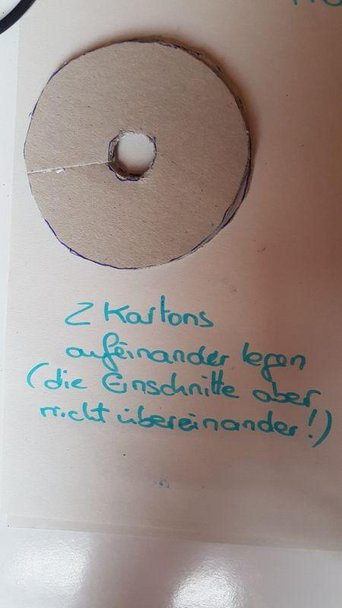 2 Kartons
aufeinander legen
(die Einschnitte aber
nicht übereinander!)